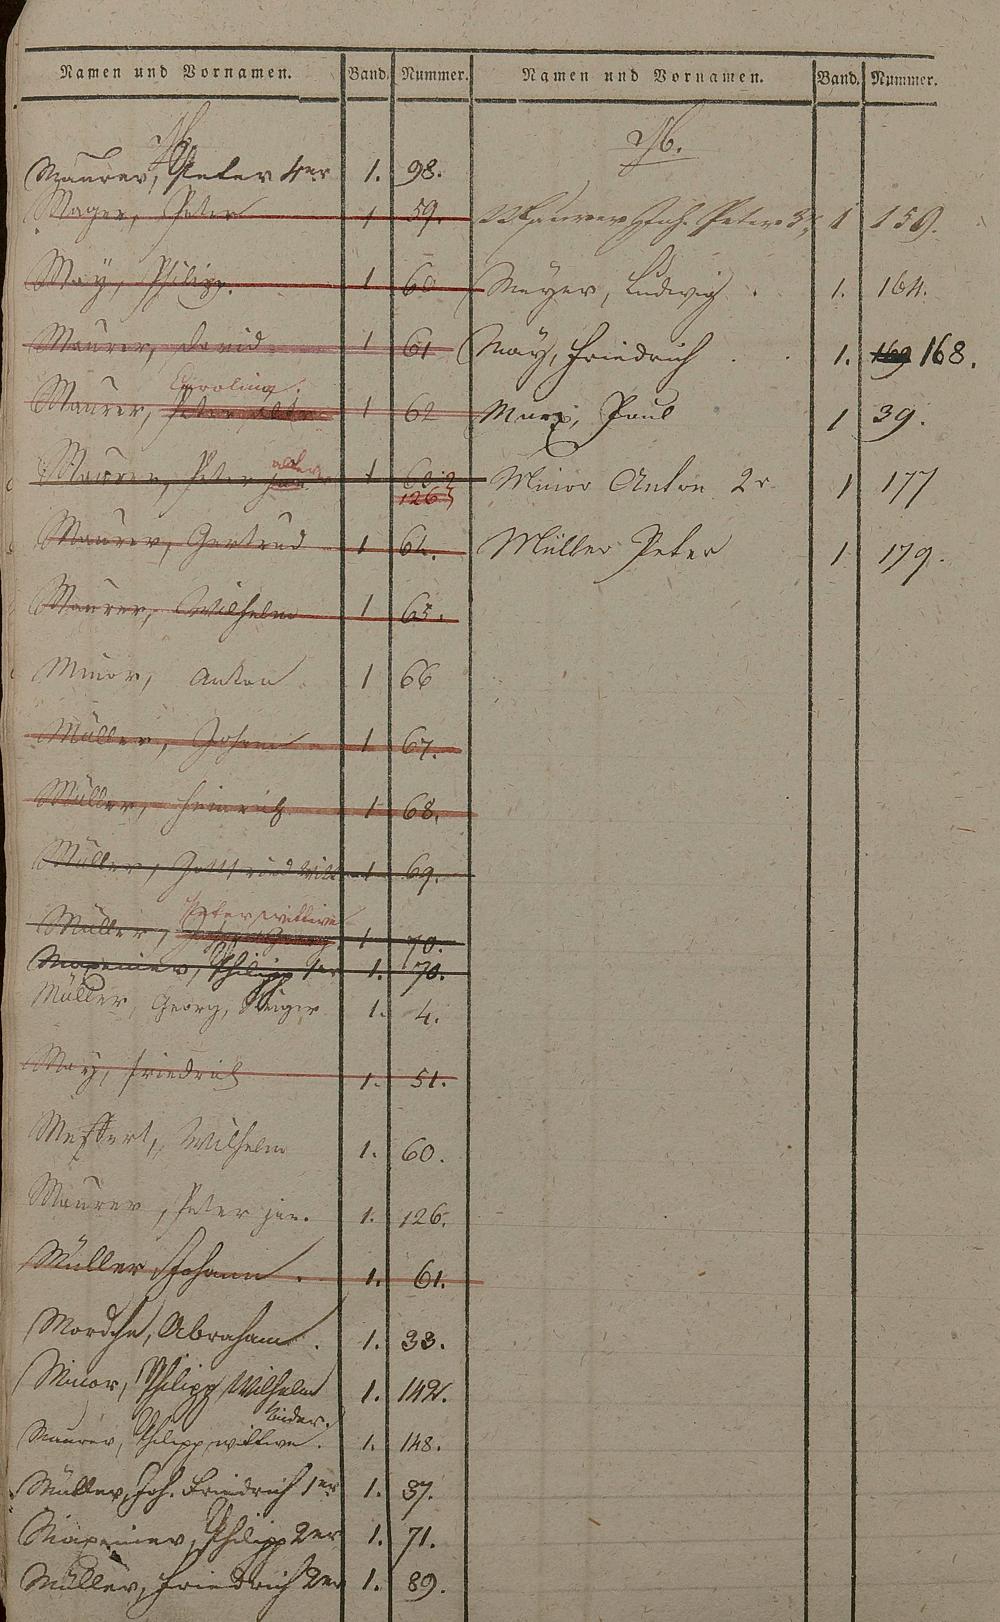 Namen und Vornamen. Band. Nummer. Namen und Vornamen. Band. Nummer.
M. M.
Maurer, Peter 4er 1. 98.
Mager, Peter 1 59.
May, Philipp. 1 60
Maurer, David 1 61
Carolina.
Maurer, Peter 1 62
alter
Maurer, Peter 1 63
126
Maurer, Gertrud 1 64.
Maurer, Wilhelm 1 65.
Minor, Anton 1 66
Müller, Johann 1 67.
Müller, Heinrich 1 68.
Müller, 1 69.
Peter wittwe
Müller, 1 70.
Philipp 1er 1. 70.
Müller, Georg, 1. 4.
May, Friedrich 1. 51.
Meffert, Wilhelm 1. 60.
Maurer, Peter jun. 1. 126.
Müller Johann. 1. 61.
Mordche, Abraham. 1. 33.
Minor, Philipp Wilhelm 1. 142.
Kinder.
Maurer, Philipp wittwe. 1. 148.
Müller, Joh. Friedrich 1er 1. 37.
Philipp 2er 1. 71.
Müller, Friedrich 2er 1. 89.
Maurer Joh. Peter 3r 1 159.
Meyer, Ludwig 1. 164.
May, Friedrich 1. 169 168.
Marx, Paul 1 39.
Minor Anton 2r 1 177
Müller Peter 1 179.